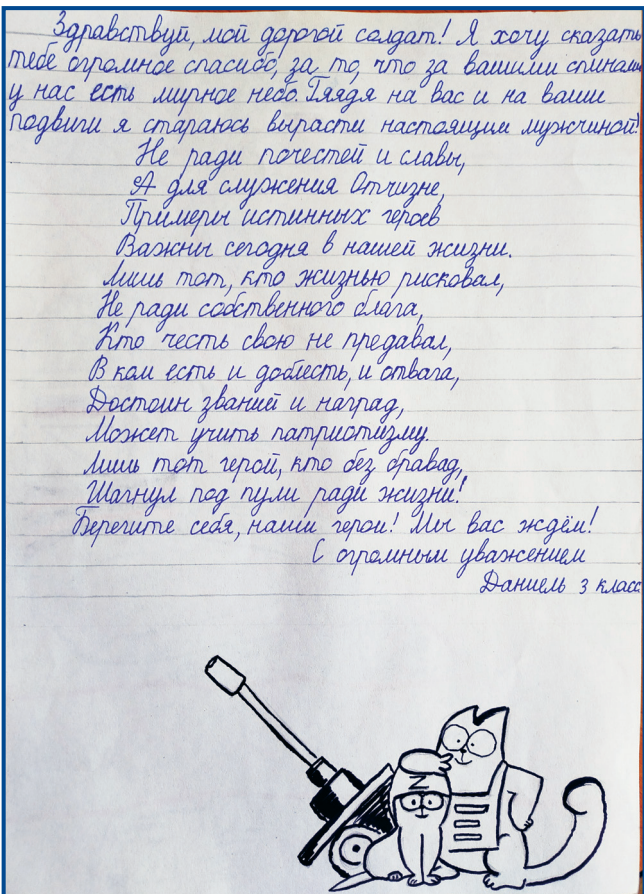 Здравствуй, мой дорогой солдат! Я хочу сказать
тебе огромное спасибо, за то, что за вашими спинами
у нас есть мирное небо. Глядя на вас и на ваши
подвиги я стараюсь вырасти настоящим мужчиной!
Не ради почестей и славы,
А для служения Отчизне,
Примеры истинных героев
Важны сегодня в нашей жизни.
Лишь тот, кто жизнью рисковал,
Не ради собственного блага,
Кто честь свою не предавал,
В ком есть и доблесть, и отвага,
Достоин званий и наград,
Может учить патриотизму.
Лишь тот герой, кто без бравад,
Шагнул под пули ради жизни!
Берегите себя, наши герои! Мы вас ждём!
С огромным уважением
Даниель 3 класс
Z